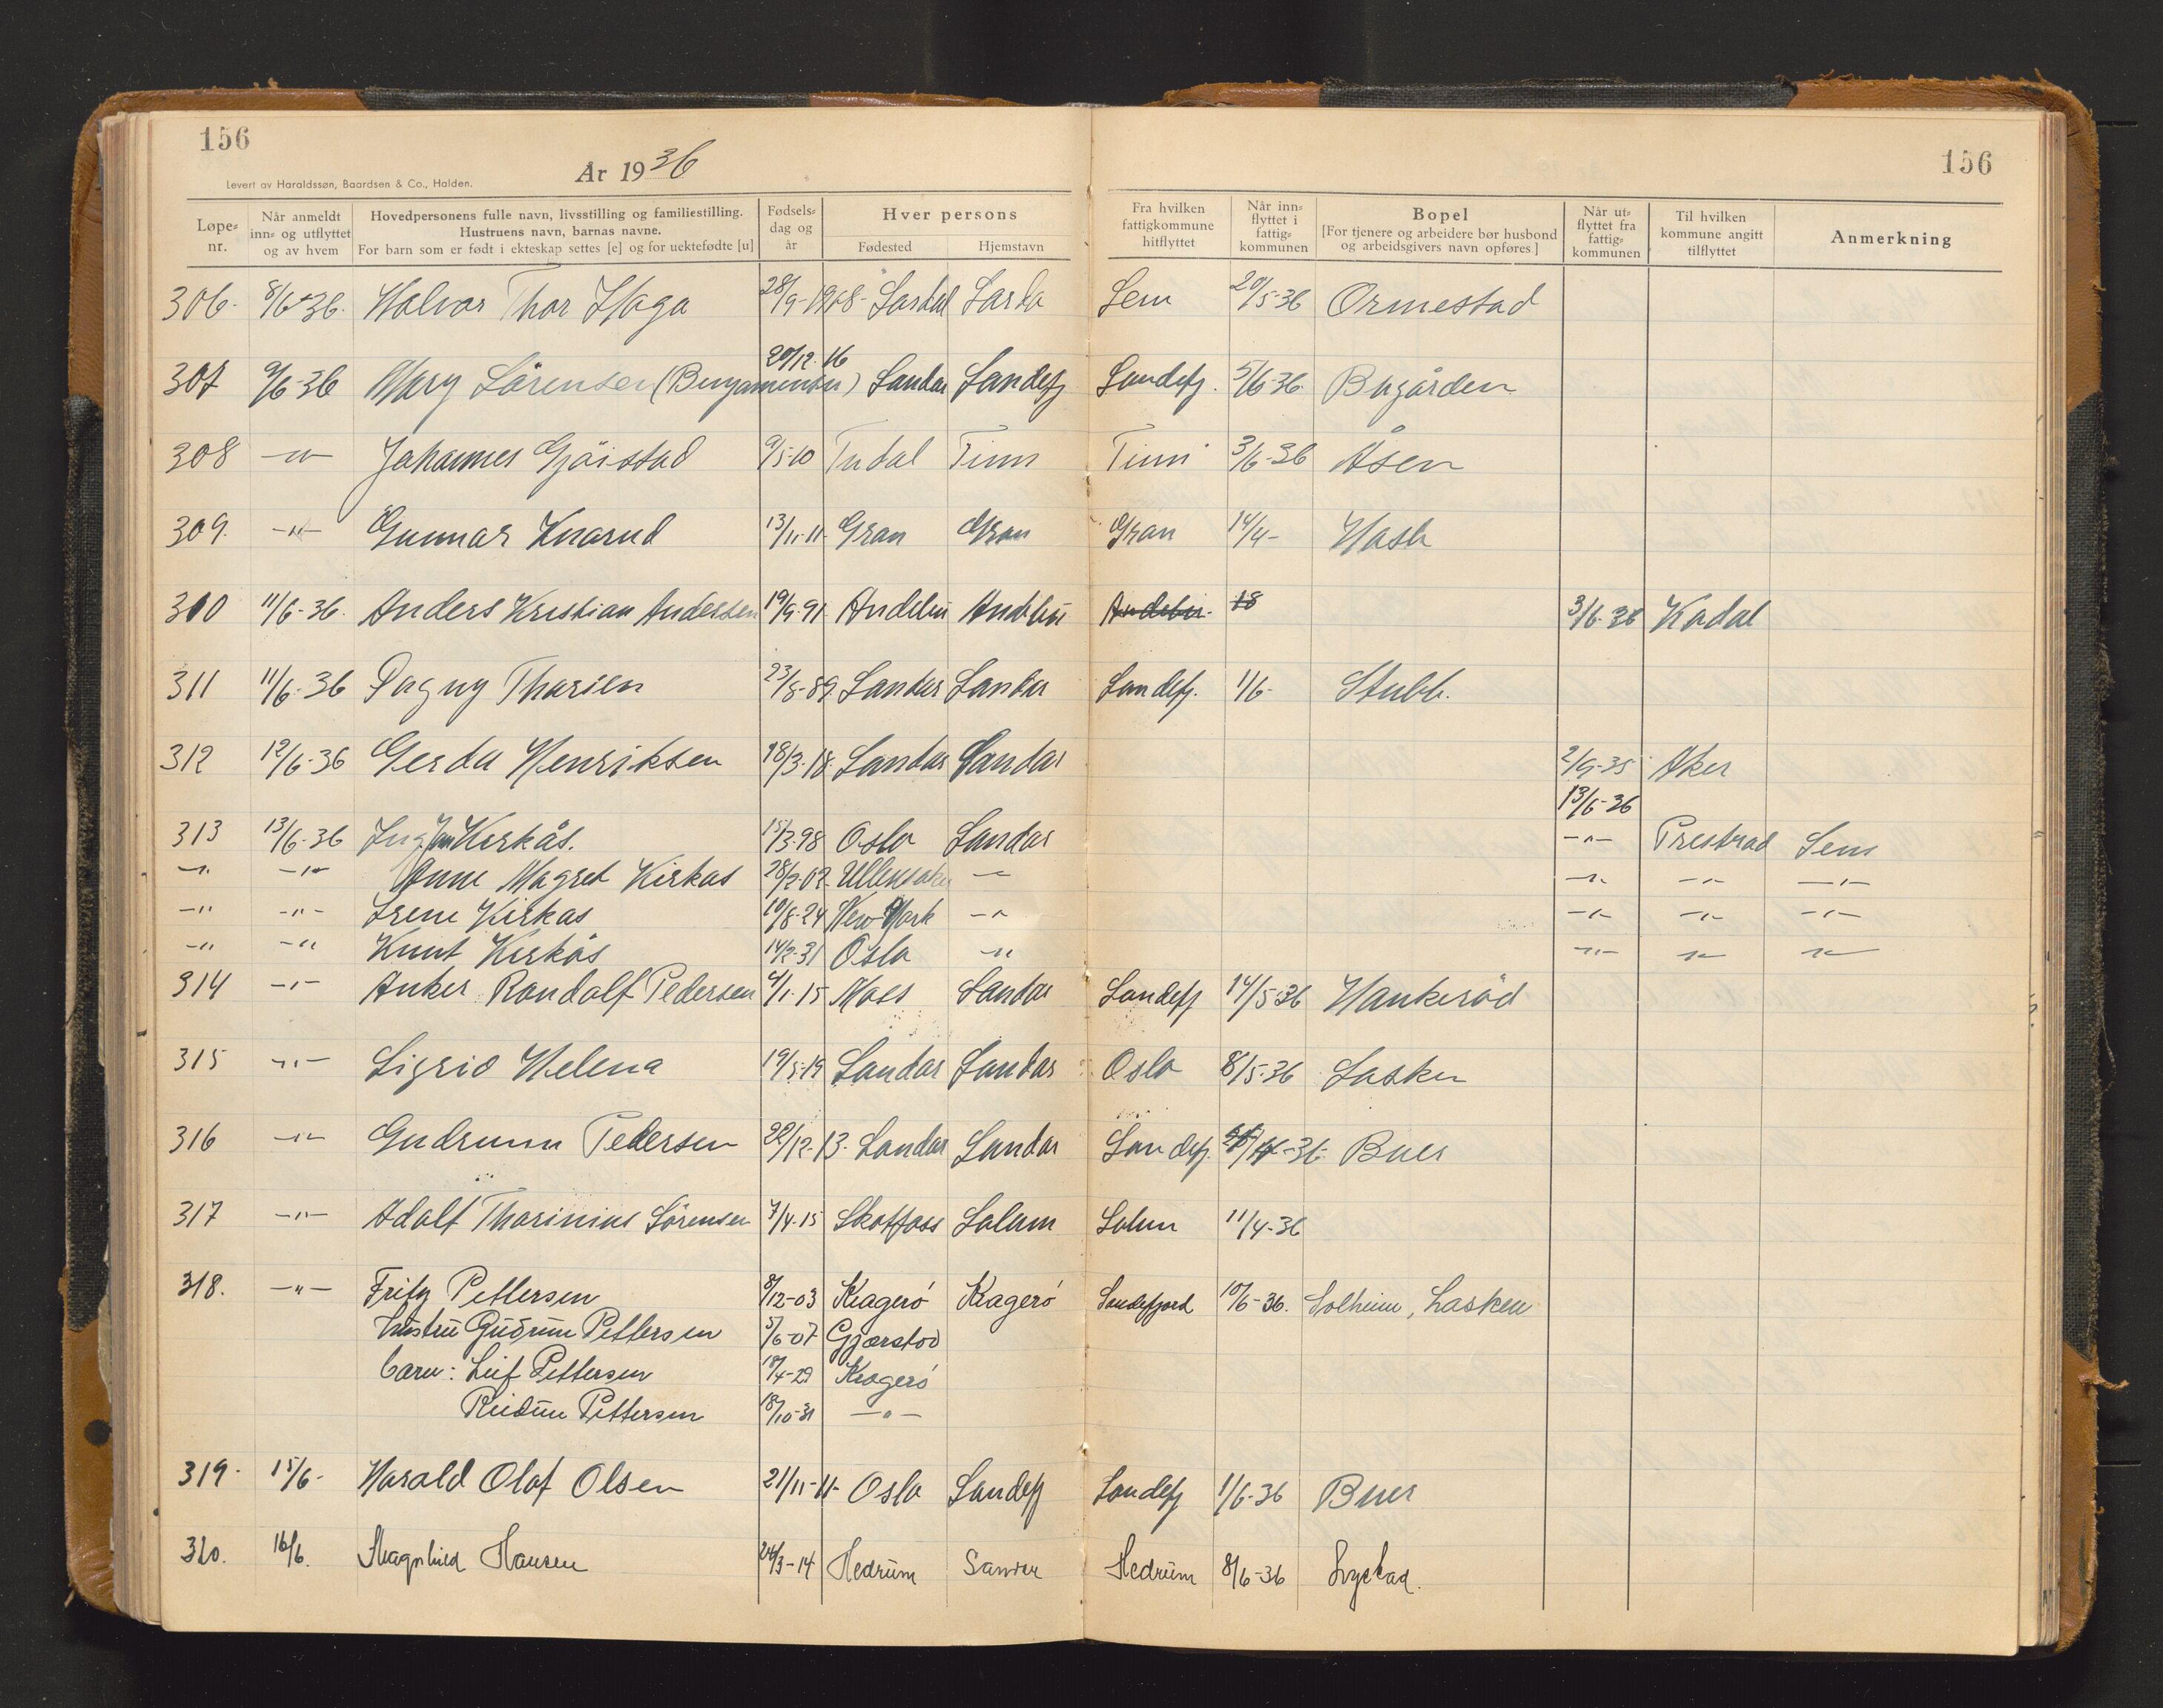 156
År 1936
156
Levert av Haraldssøn, Baardsen & Co., Halden.
Løpe-nr. Når anmeldt inn- og utflyttet og av hvem Hovedpersonens fulle navn, livsstilling og familiestilling. Hustruens navn, barnas navne. For barn som er født i ekteskap settes [e] og for uektefødte [u] Fødsels-dag og år Hver persons Fødested Hjemstavn Fra hvilken fattigkommune hitflyttet Når inn-flyttet i fattig-kommunen Bopel [For tjenere og arbeidere bør husbond og arbeidsgivers navn opføres] Når ut-flyttet fra fattig-kommunen Til hvilken kommune angitt tilflyttet Anmerkning
306. 8/6-36. Halvor Thor Haga 28/9-1908- Sem 20/5-36 Ormestad
307 9/6-36 Mary Sörensen (Benjaminsen) 20/12-16 Sandar Sandefj Sandefj. 5/6-36. Bugården
308 -"- Johannes Gjöistad 9/5-10 Tudal Tinn Tinn 3/6-36 Åsen
309. -"- Gunnar Knarud 13/11-11- Gran Gran Gran 14/4- Hasle
310 11/6-36. Anders Kristian Andersen 19/9-91 Andebu Andebu Andebu. 18 3/6-36 Kodal
311 11/6-36 Dagny Thorsen 23/8-89 Sandar Sandar Sandefj. 1/6- Stubb.
312 12/6-36 Gerda Henriksen 18/3-18 Sandar Sandar 2/9-35 Aker
13/6-36
313 13/6-36 Kirkås. 15/3-98 Oslo Sandar -"- Prestrød Sem
-"- -"- Anne Magret Kirkas 28/2-02 Ullensaker -"- -"- -"- -"-
-"- -"- Irene Kirkas 10/8-24 New York -"- -"- -"- -"-
-"- -"- Knut Kirkås 14/2-31 Oslo -"- -"- -"- -"-
314 -"- Anker Randolf Pedersen 4/1-15 Moss Sandar Sandefj 14/5-36 Haukerød
315 -"- Sigrid Helena 19/5-19 Sandar Sandar Oslo 8/5-36 Lasken
316 -"- Gudrunn Pedersen 22/12-13- Sandar Sandar Sandefj. -36- Buer
317 -"- Adolf Thorinius Sörensen 7/4-15 Skotfoss Solum Solum 11/4-36
318. -"- Fritz Pettersen 8/12-03 Kragerö Kragerö Sandefjord 10/6-36. Solheim, Lasken
hustru Gudrun Pettersen 5/6-07 Gjerstad
barn: Leif Pettersen 18/4-29 Kragerö
Reidun Pettersen 18/10-31 -"-
319. 15/6- Harald Olaf Olsen 21/11-11- Oslo Sandefj Sandefj 1/6-36 Buer
320. 16/6. Magnhild Hansen 24/3-14 Hedrum Sandar Hedrum 8/6-36